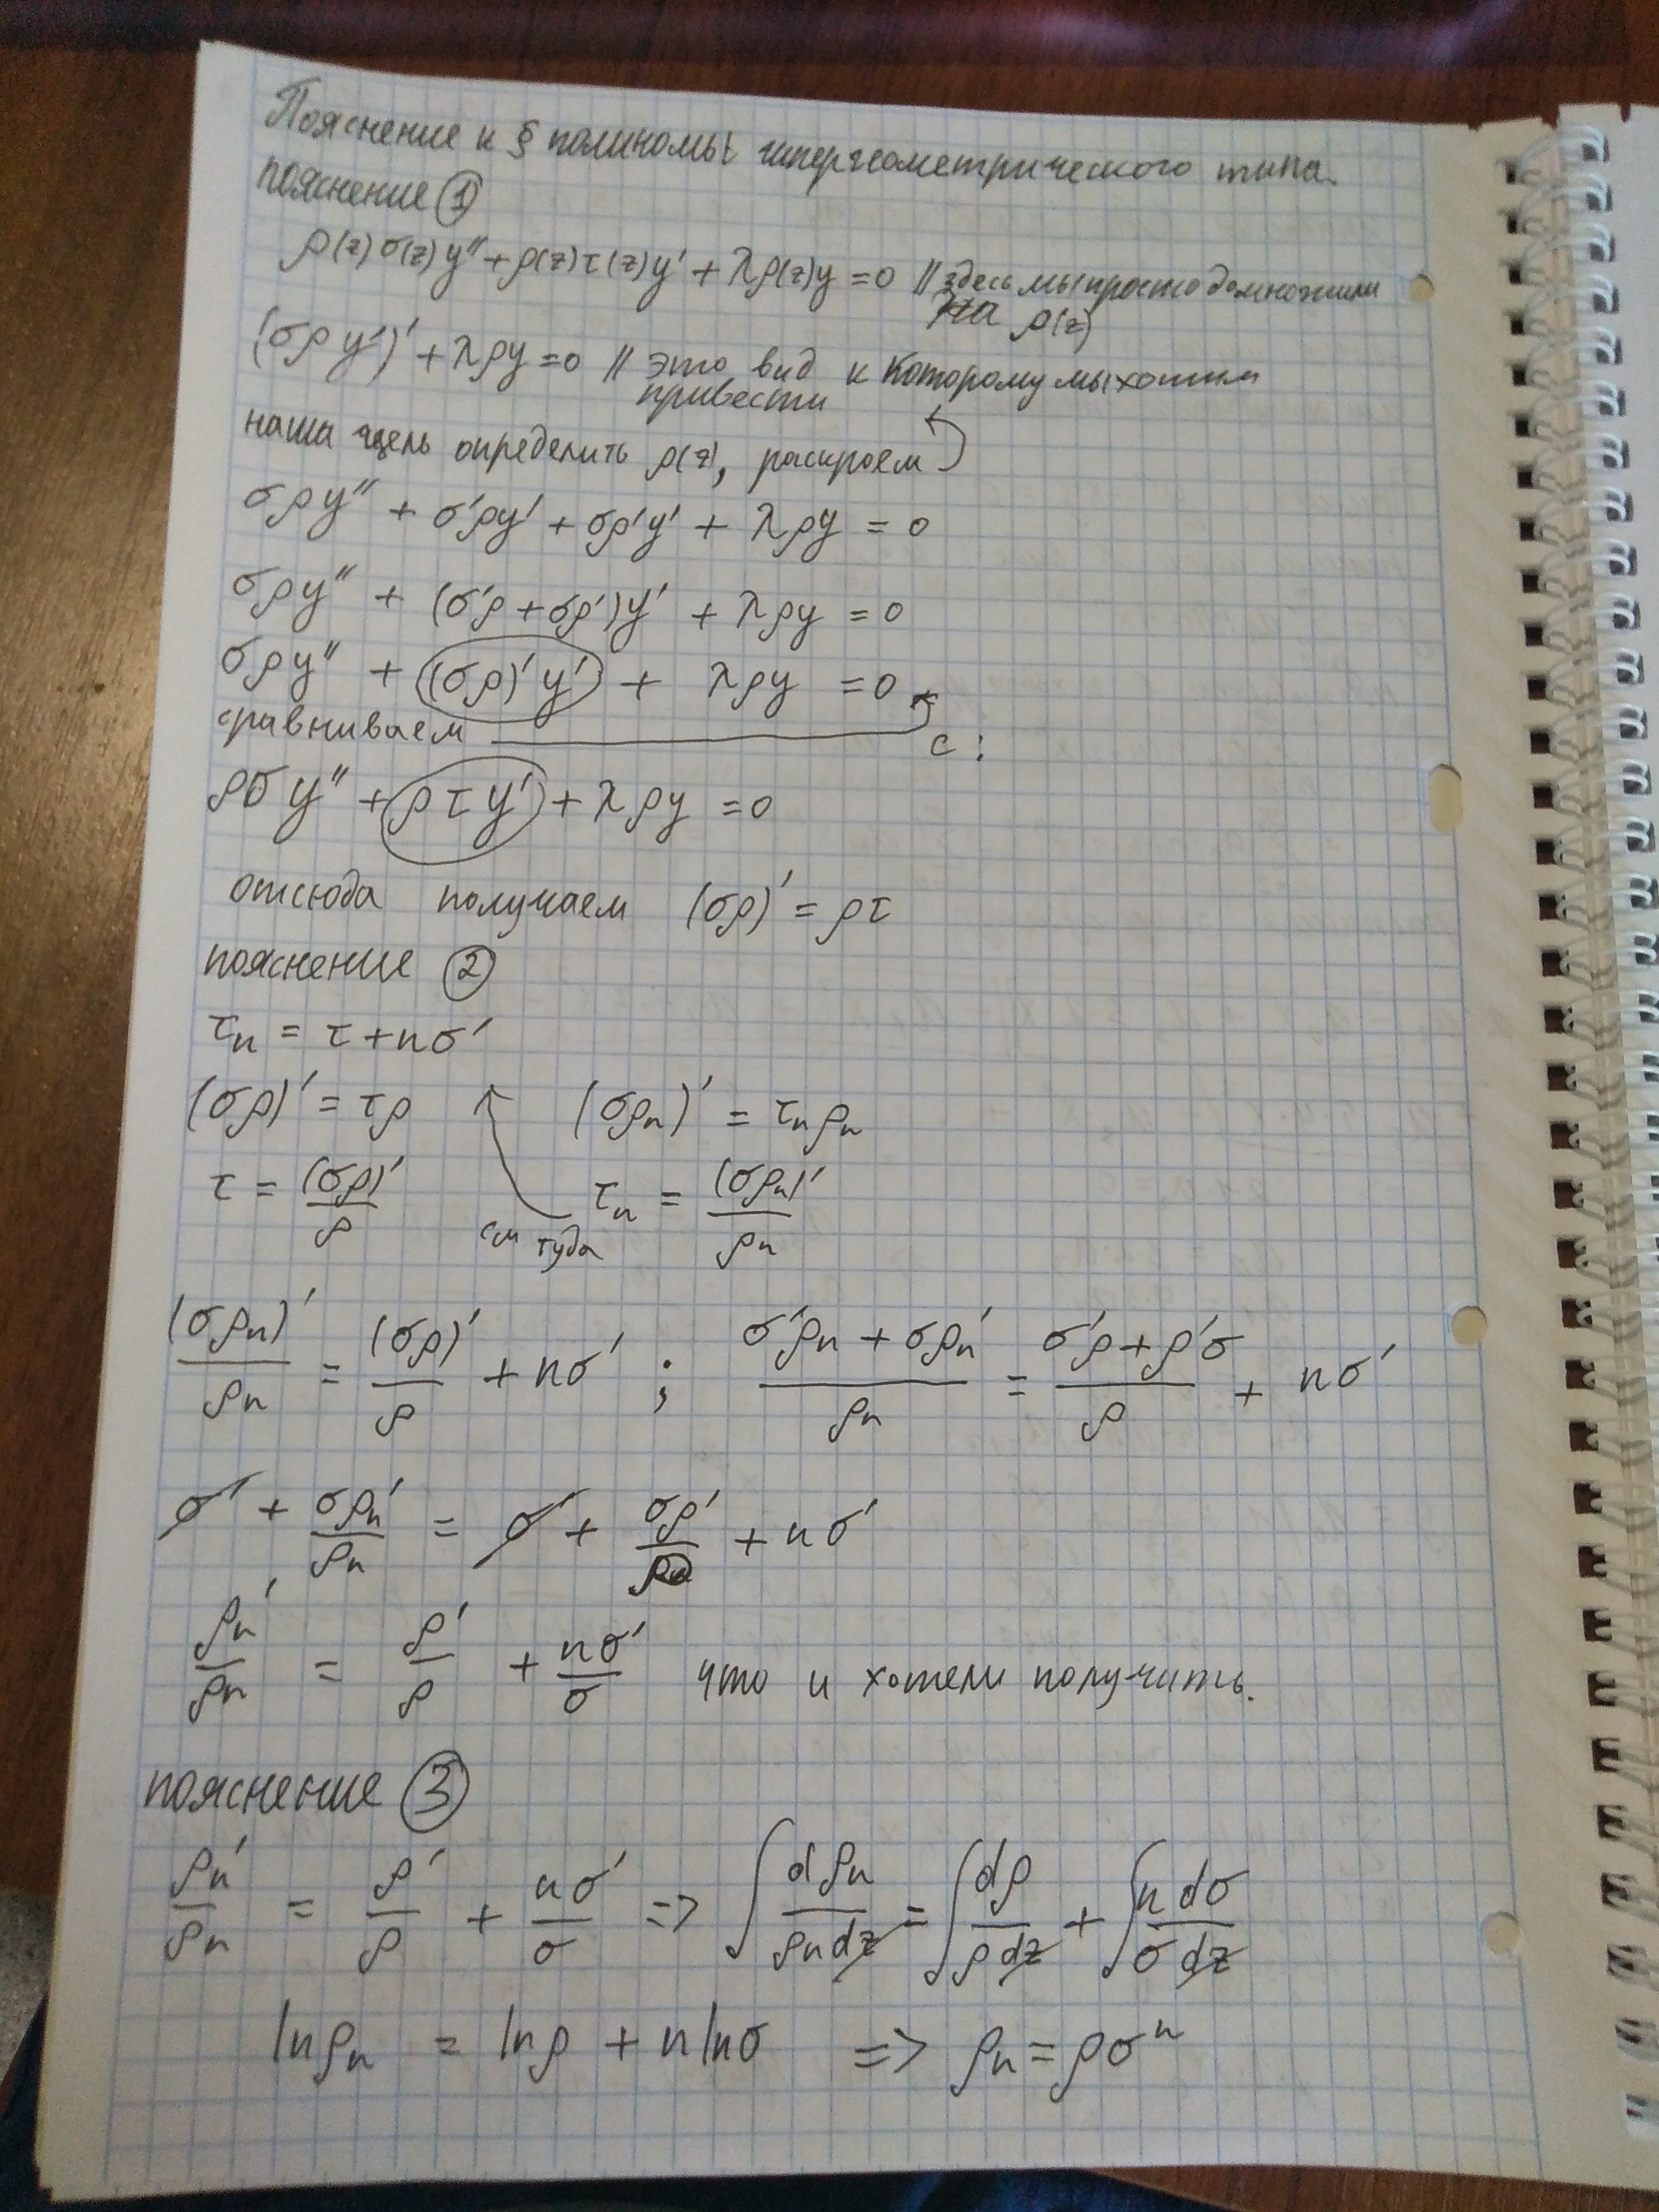 Пояснение к § полиномы гипергеометрического типа.
пояснение ①
ρ(z)σ(z)y'' + ρ(z)τ(z)y' + λρ(z)y = 0 // здесь мы просто домножили
на ρ(z)
(σρy')' + λρy = 0 // это вид к которому мы хотим
привести
наша цель определить ρ(z), раскроем
σρy'' + σ'ρy' + σρ'y' + λρy = 0
σρy'' + (σ'ρ + σρ')y' + λρy = 0
σρy'' + (σρ)'y' + λρy = 0
сравниваем с:
ρσy'' + ρτy' + λρy = 0
отсюда получаем (σρ)' = ρτ
пояснение ②
τₙ = τ + nσ'
(σρ)' = τρ (σρₙ)' = τₙρₙ
τ = (σρ)'/ρ см туда τₙ = (σρₙ)'/ρₙ
(σρₙ)'/ρₙ = (σρ)'/ρ + nσ' ; (σ'ρₙ + σρₙ')/ρₙ = (σ'ρ + ρ'σ)/ρ + nσ'
σ' + σρₙ'/ρₙ = σ' + σρ'/ρ + nσ'
ρₙ'/ρₙ = ρ'/ρ + nσ'/σ что и хотели получить.
пояснение ③
ρₙ'/ρₙ = ρ'/ρ + nσ'/σ => ∫dρₙ/(ρₙdz) = ∫dρ/(ρdz) + ∫ndσ/(σdz)
lnρₙ = lnρ + nlnσ => ρₙ = ρσⁿ